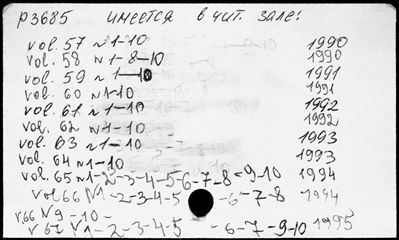 р3685 имеется в чит. зале:
vol. 57 №1-10 1990
vol. 58 №1-8-10 1990
vol. 59 №1-10 1991
vol. 60 №1-10 1991
vol. 61 №1-10 1992
vol. 62 №1-10 1992
vol. 63 №1-10 1993
vol. 64 №1-10 1993
vol. 65 №1-2-3-4-5-6-7-8-9-10 1994
vol 66 №1-2-3-4-5-6-7-8 1994
v66 №9-10-
v 67 №1-2-3-4-5-6-7-9-10 1995